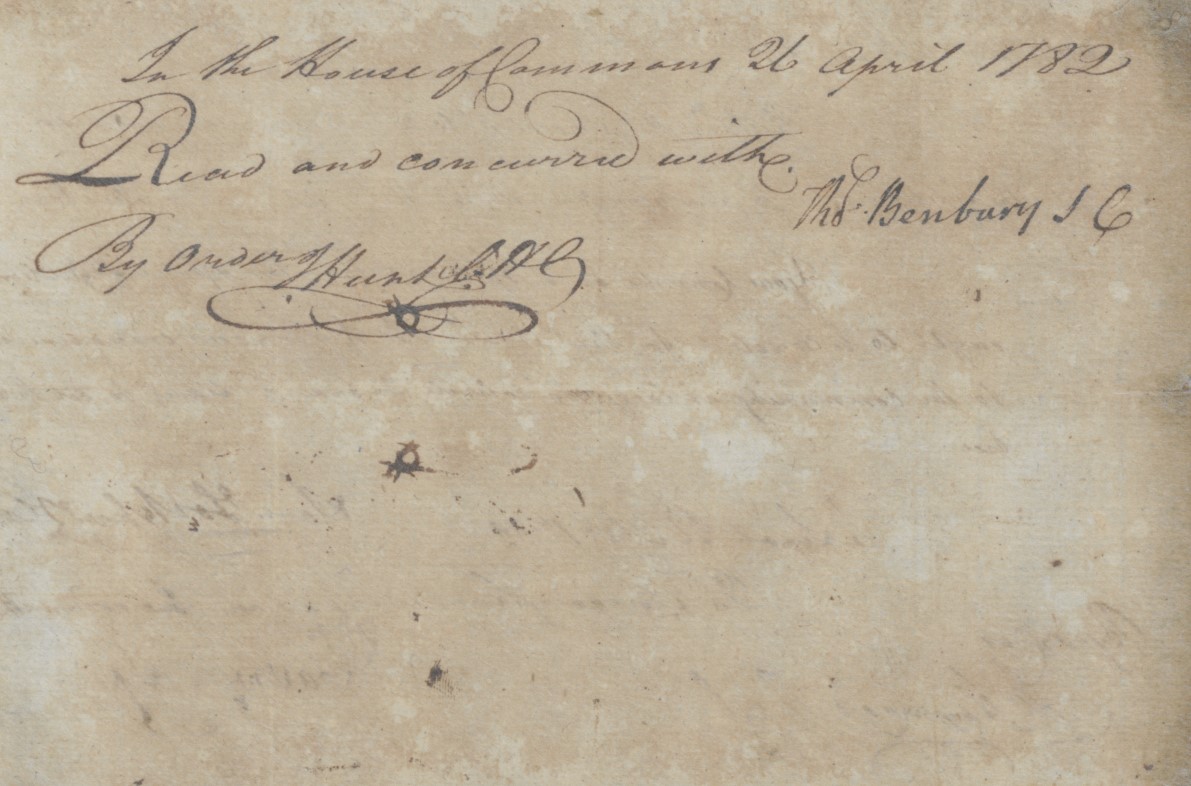 In the House of Commons 26 April 1782
Read and concurred with.
Thos. Benbury S C
By order J Hunt C H C